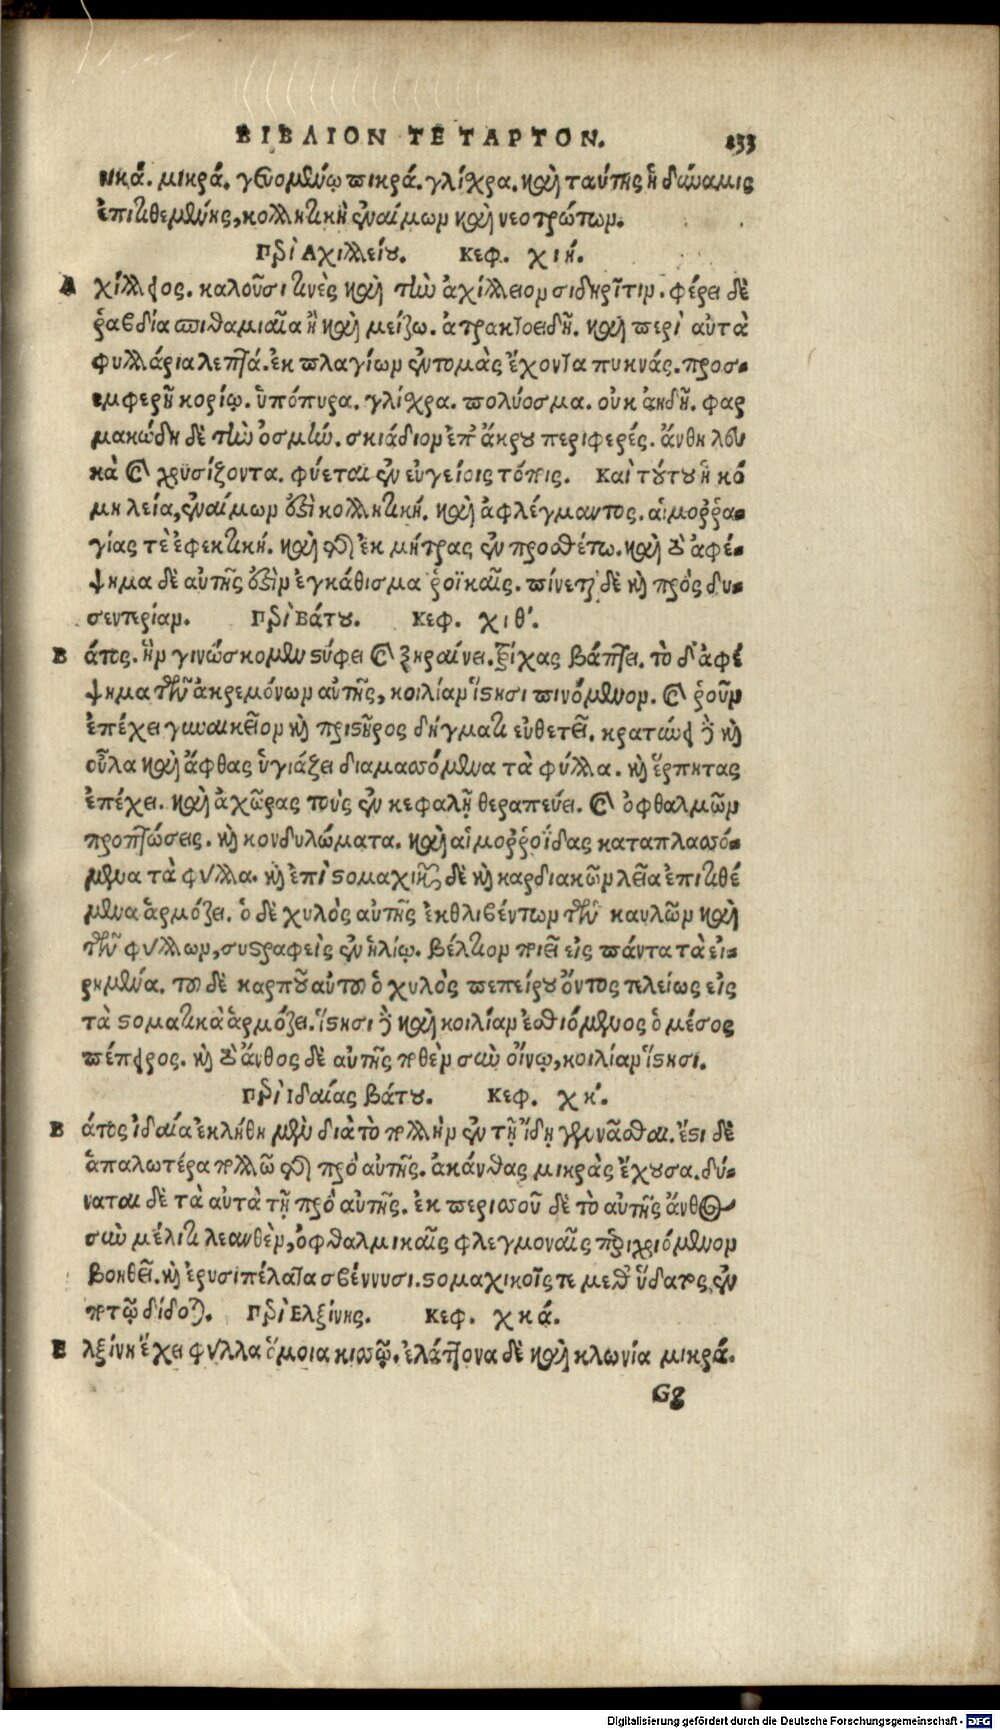 ΒΙΒΛΙΟΝ ΤΕΤΑΡΤΟΝ. 233
νικά. μικρά. γευομένῳ πικρά. γλίχρα. καὶ ταύτης ἡ δύναμις
ἐπιτιθεμένης, κολλητικὴ ἐναίμων καὶ νεοτρώτων.
Περὶ Αχιλλείου. Κεφ. λϛ΄.
Αχίλλειος. καλοῦσι τινὲς καὶ τὴν ἀχίλλειον σιδηρῖτιν. φέρει δὲ
ῥαβδία σπιθαμιαῖα ἢ καὶ μείζω. ἀτρακτοειδῆ. καὶ περὶ αὐτὰ
φυλλάρια λεπτά. ἐκ πλαγίων ἐντομὰς ἔχοντα πυκνάς. προσ-
εμφερῆ κορίῳ. ὑπόπυρα. γλίχρα. πολύοσμα. οὐκ ἀηδῆ. φαρ
μακώδη δὲ τὴν ὀσμήν. σκιάδιον ἐπ' ἄκρου περιφερές. ἄνθη λευ
κὰ καὶ χρυσίζοντα. φύεται ἐν εὐγείοις τόποις. Καὶ τούτου ἡ κό
μη λεία, ἐναίμων ἐστὶ κολλητική. καὶ ἀφλέγμαντος. αἱμοῤῥα-
γίας τὲ ἐφεκτική. καὶ τῆς ἐκ μήτρας ἐν προσθέτῳ. καὶ τὸ ἀφέ-
ψημα δὲ αὐτῆς ἐστὶν ἐγκάθισμα ῥοϊκαῖς. πίνεται δὲ καὶ πρὸς δυ-
σεντερίαν. Περὶ Βάτου. Κεφ. λζ΄.
Βάτος. ἣν γινώσκομεν στύφει καὶ ξηραίνει. τρίχας βάπτει. τὸ δ' ἀφέ
ψημα τῶν ἀκρεμόνων αὐτῆς, κοιλίαν ἵστησι πινόμενον. καὶ ῥοῦν
ἐπέχει γυναικεῖον καὶ πρηστῆρος δήγματι εὐθετεῖ. κρατύνει δὲ καὶ
οὖλα καὶ ἄφθας ὑγιάζει διαμασσόμενα τὰ φύλλα. καὶ ἕρπητας
ἐπέχει. καὶ ἀχῶρας τοὺς ἐν κεφαλῇ θεραπεύει. καὶ ὀφθαλμῶν
προπτώσεις. καὶ κονδυλώματα. καὶ αἱμοῤῥοΐδας καταπλασσό-
μενα τὰ φύλλα. καὶ ἐπὶ στομαχικῶν δὲ καὶ καρδιακῶν λεῖα ἐπιτιθέ
μενα ἁρμόζει. ὁ δὲ χυλὸς αὐτῆς ἐκθλιβέντων τῶν καυλῶν καὶ
τῶν φύλλων, συστραφεὶς ἐν ἡλίῳ. βέλτιον ποιεῖ εἰς πάντα τὰ εἰ-
ρημένα. τοῦ δὲ καρποῦ αὐτοῦ ὁ χυλὸς πεπείρου ὄντος τελείως εἰς
τὰ στοματικὰ ἁρμόζει. ἵστησι δὲ καὶ κοιλίαν ἐσθιόμενος ὁ μέσος
πέπειρος. καὶ τὸ ἄνθος δὲ αὐτῆς ποθὲν σὺν οἴνῳ, κοιλίαν ἵστησι.
Περὶ Ιδαίας βάτου. Κεφ. λη΄.
Βάτος ἰδαία ἐκλήθη μὲν διὰ τὸ πολλὴν ἐν τῇ ἴδῃ γεννᾶσθαι. ἔστι δὲ
ἁπαλωτέρα πολλῶ τῆς πρὸ αὐτῆς. ἀκάνθας μικρὰς ἔχουσα. δύ-
ναται δὲ τὰ αὐτὰ τῇ πρὸ αὐτῆς. ἐκ περισσοῦ δὲ τὸ αὐτῆς ἄνθος
σὺν μέλιτι λεανθὲν, ὀφθαλμικαῖς φλεγμοναῖς περιχριόμενον
βοηθεῖ. καὶ ἐρυσιπέλατα σβέννυσι. στομαχικοῖς τε μεθ' ὕδατος ἐν
ποτῷ δίδοται. Περὶ Ελξίνης. Κεφ. λθ΄.
Ελξίνη ἔχει φύλλα ὅμοια κισσῷ. ἐλάττονα δὲ καὶ κλωνία μικρά.
Gg
Digitalisierung gefördert durch die Deutsche Forschungsgemeinschaft - DFG